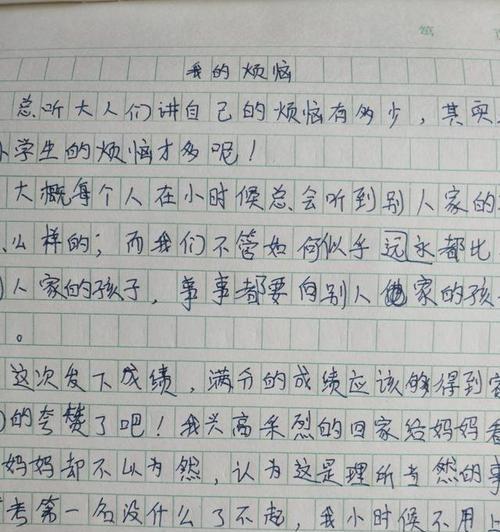 第
我的烦恼
总听大人们讲自己的烦恼有多少，其实
小学生的烦恼才多呢！
大概每个人在小时候总会听到别人家的
么样的；而我们不管如何似乎远永都比
人家的孩子，事事都要向别人家的孩
。
这次发下成绩，满分的成绩应该够得到
的夸赞了吧！我兴高采烈的回家给妈妈看
妈妈却不以为然，认为这是理所当然的事
考第一名没什么了不起，我小时候不用